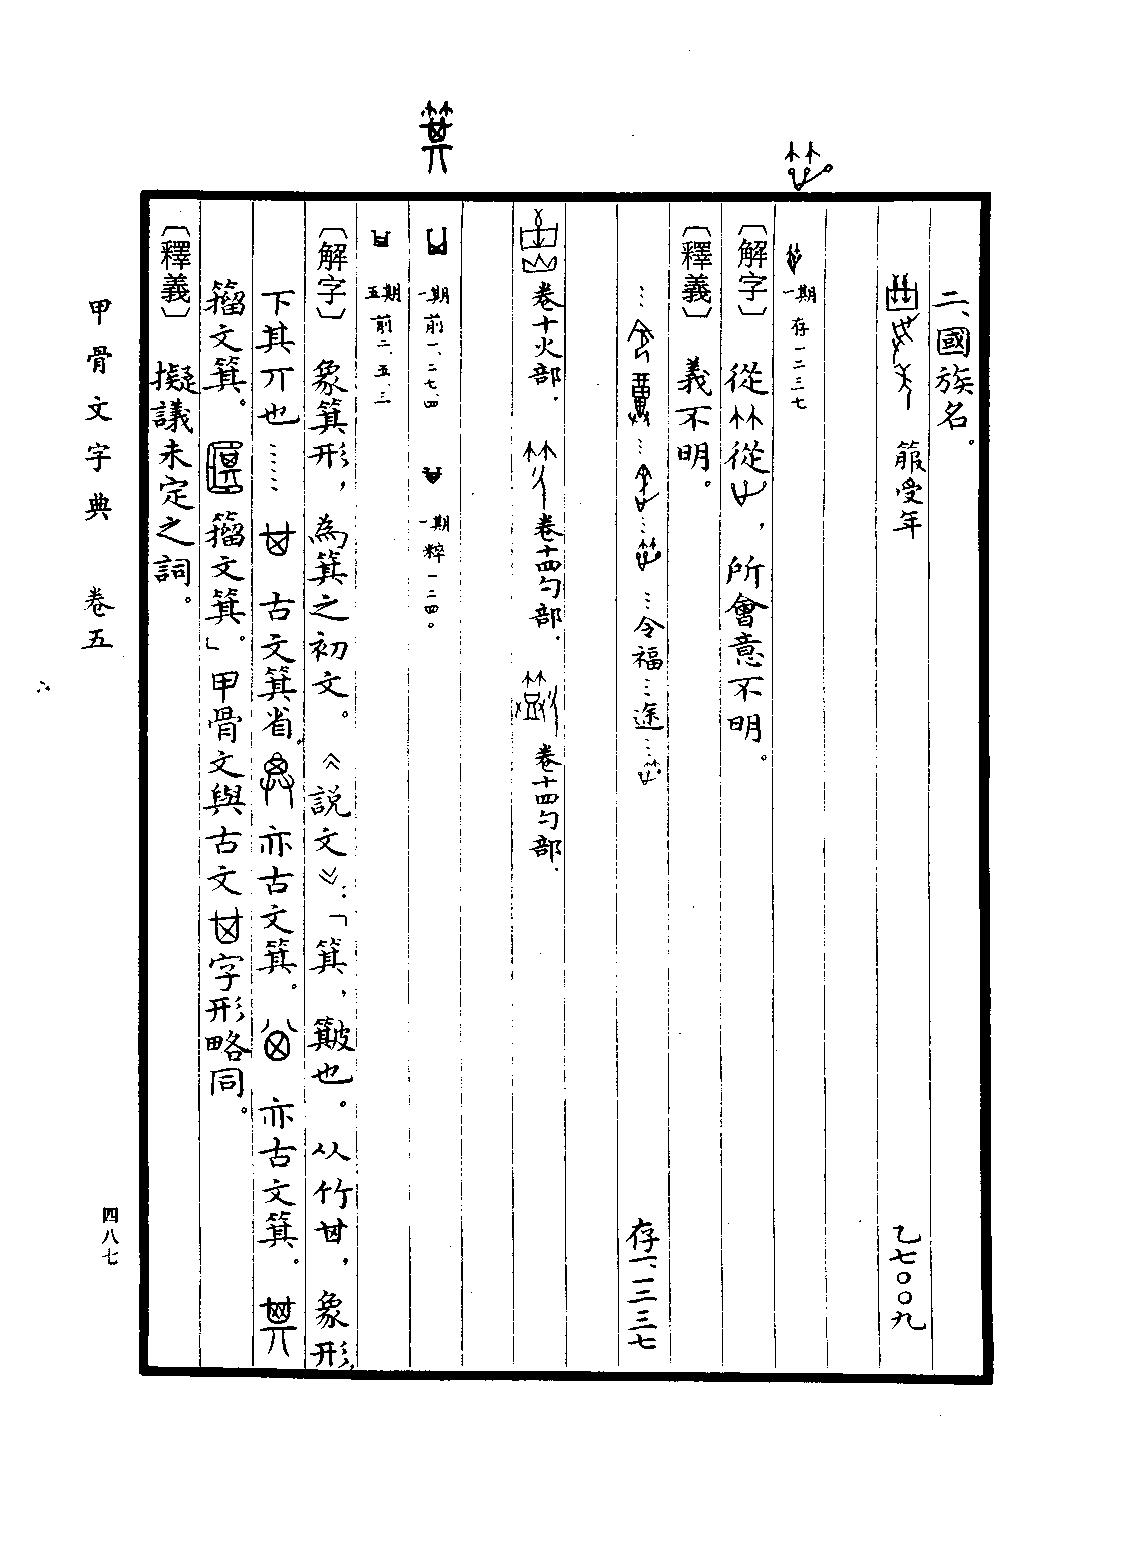 二、國族名。
箙受年
乙七〇〇九
一期 存一二三七
〔解字〕 從𥫗從，所會意不明。
〔釋義〕 義不明。
…令福…途…
存一、二三七
卷十火部．
卷十四勹部．
卷十四勹部．
一期 前一、二七、四
一期 粹一二四。
五期 前二、五、三
〔解字〕 象箕形，為箕之初文。《說文》：「箕，簸也。从竹𠀠，象形，
下其丌也……𠀠古文箕省。亦古文箕。亦古文箕。
籀文箕。籀文箕。」甲骨文與古文𠀠字形略同。
〔釋義〕 擬議未定之詞。
甲骨文字典 卷五
四八七